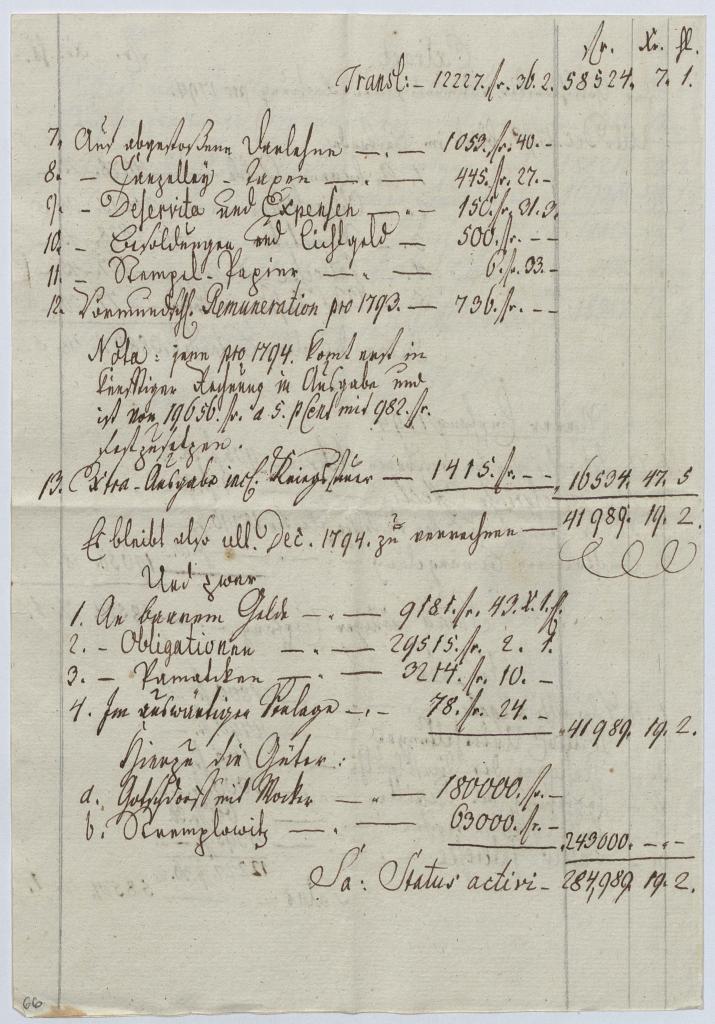 fr. Xr. hl.
Transl: – 12227. fr. 36. 2. 58524. 7. 1.
7. Auf abgestoßene Darlehne —.— 1053. fr. 40. –
8. – Canzelley-Taxen —.— 445. fr. 27. –
9. – Deservita und Expensen —.— 150. fr. 31. 3.
10. – Besoldungen und Lichtgeld — 500. fr. – –
11. – Stempel-Papier, —.— 6. fr. 33. –
12. Vormundschl. Remuneration pro 1793. — 736. fr. – –
Nota: jene pro 1794. komt erst in
künfftiger Rechnung in Ausgabe und
ist von 19656. fr. a 5. pCent mit 982. fr.
festzusetzen.
13. Extra-Ausgabe incl. Kriegssteuer — 1415. fr. – – 16534. 47. 5
Es bleibt also ult. Dec. 1794. zu verrechnen — 41989. 19. 2.
Und zwar
1. An baarem Gelde —.— 9181. fr. 43. X. 1. hl.
2. – Obligationen —.— 29515. fr. 2. 1.
3. – Pamatken —.— 3214. fr. 10. –
4. Im auswärtigen 78. fr. 24. – 41989. 19. 2.
Hierzu die Güter:
a. Gotschdorff mit Mocker —.— 180000. fr. –
b. Stremplowitz —.— 63000. fr. – 243000. –.–
Sa: Status activi – 284,989. 19. 2.
66